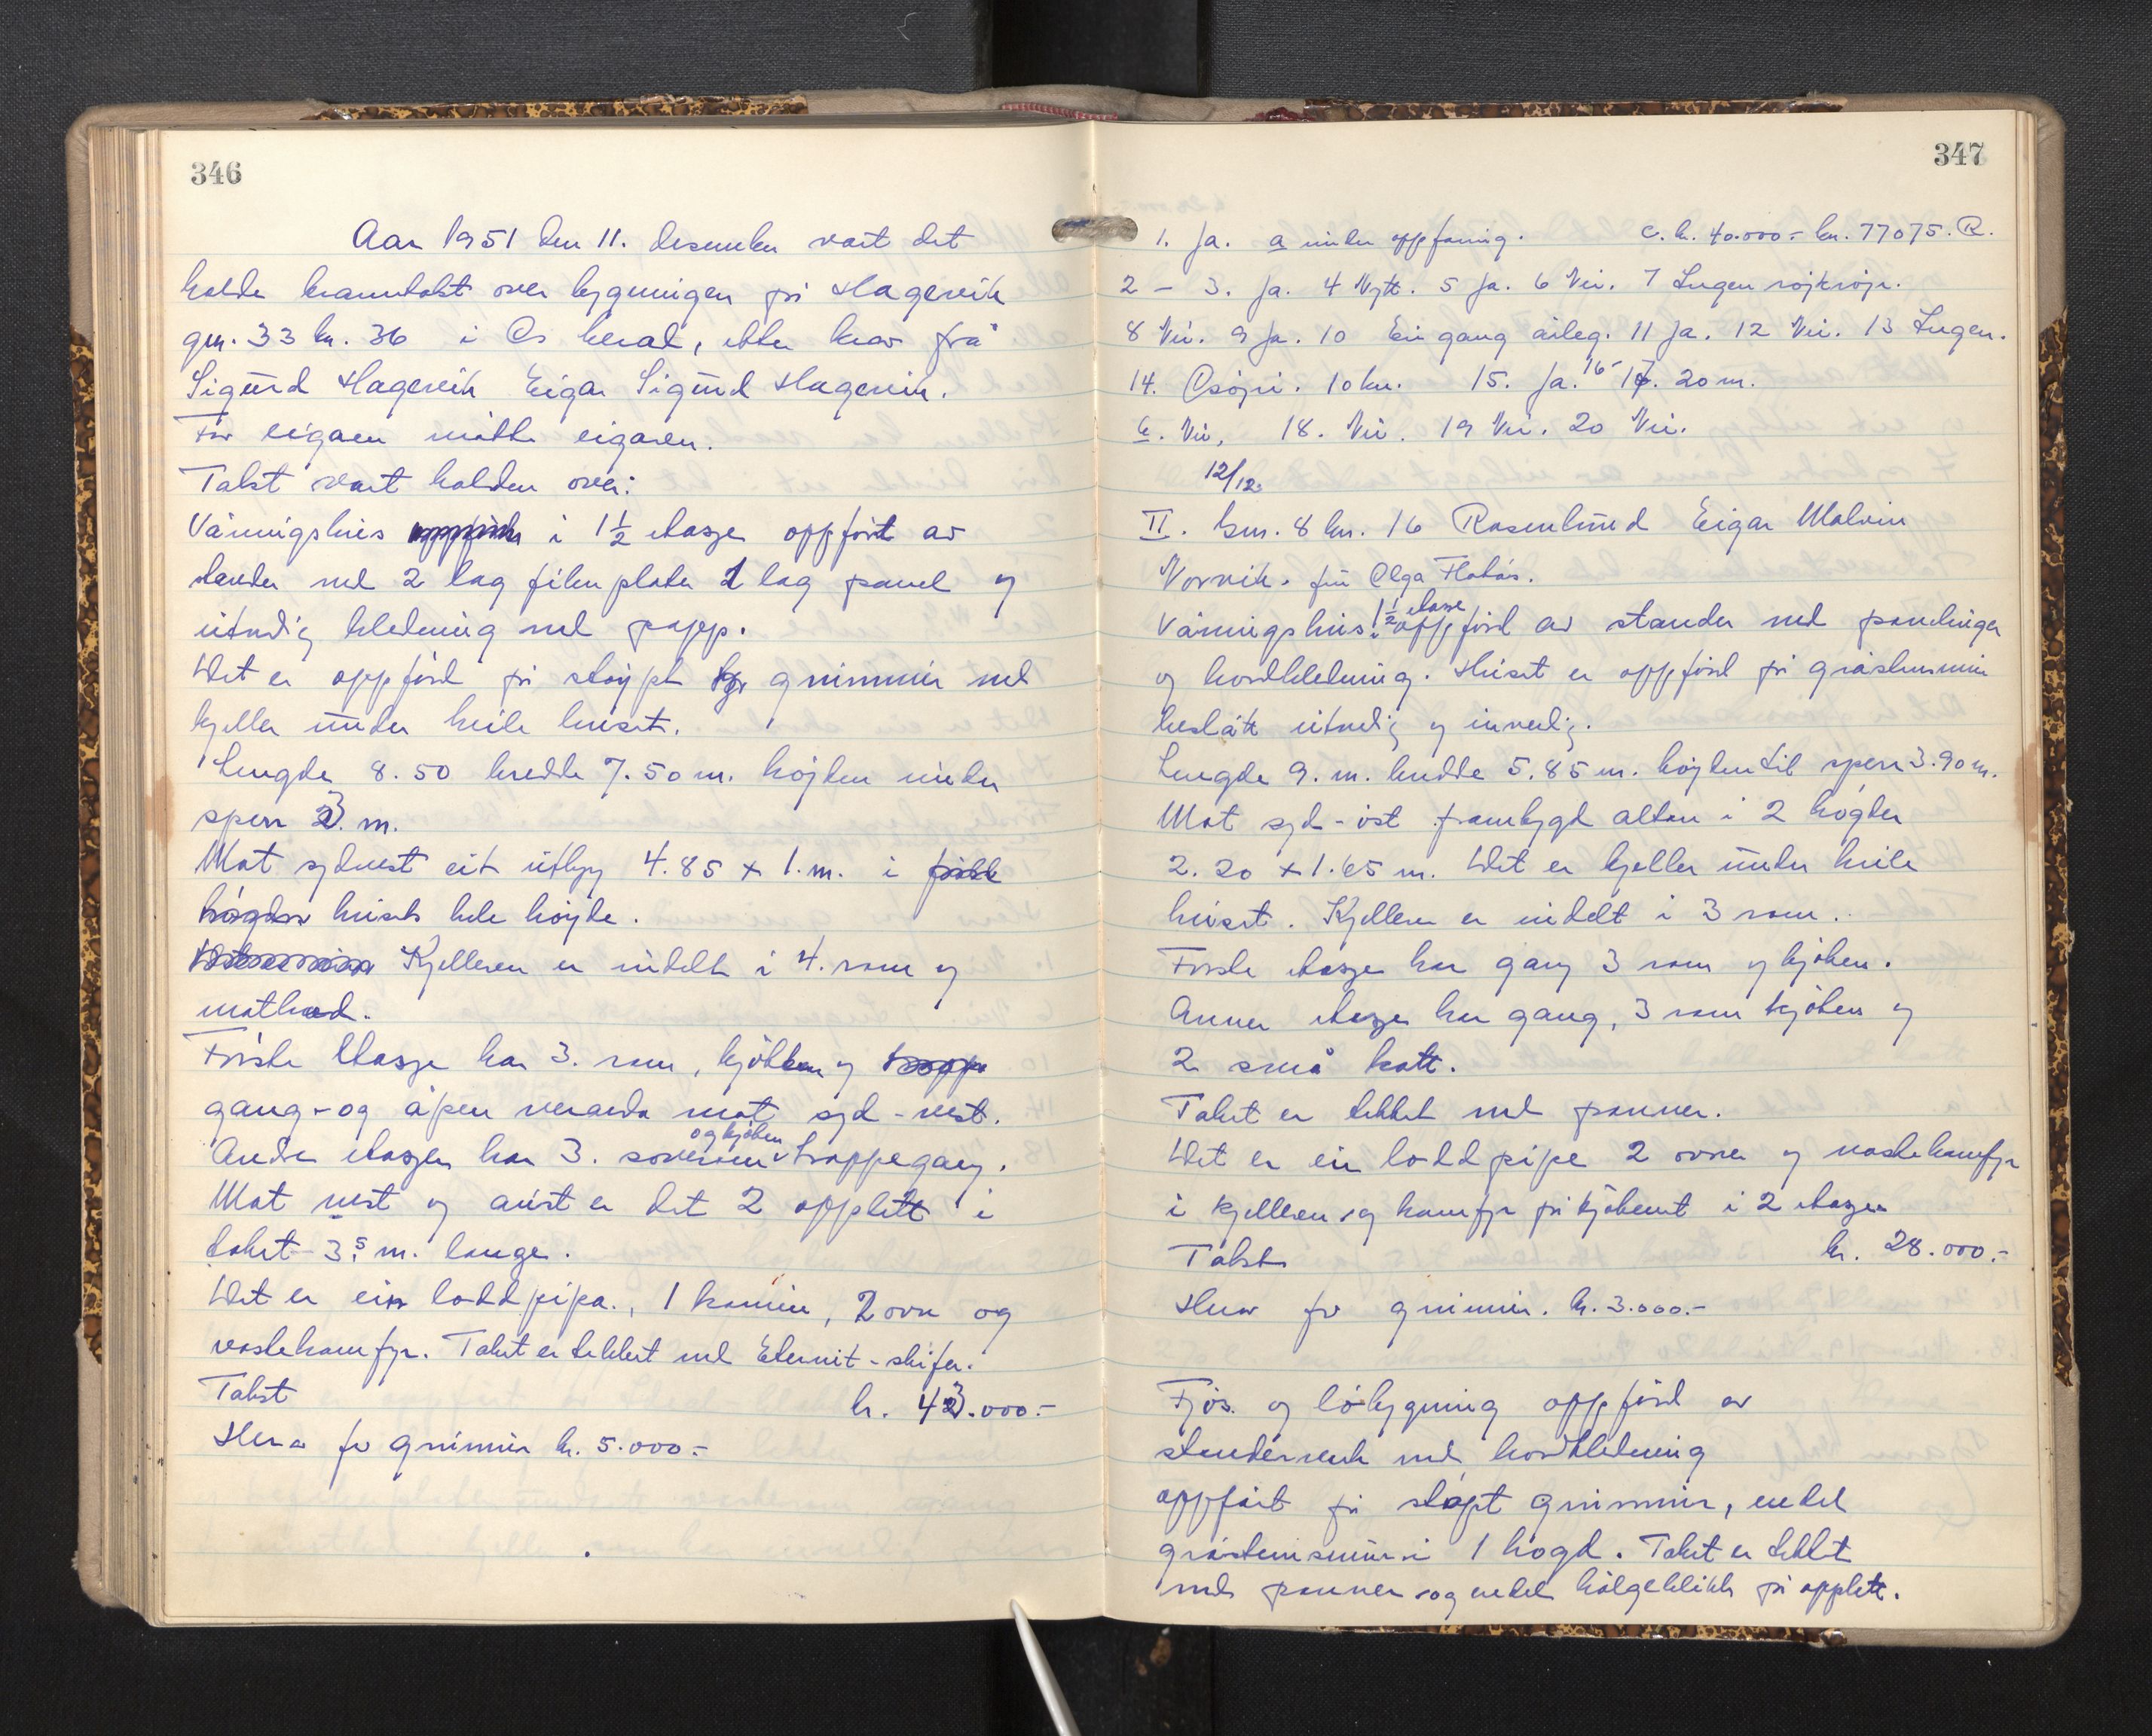 346
Aar 1951 den 11. desember vart det
halde branntakst over bygningen på Hagevik
gn. 33 bn. 36 i Os herad, etter krav frå
Sigurd Hagevik Eigar Sigurd Hagevik.
For eigaen møtte eigaren.
Takst vart halden over:
Våningshus i 1½ etasje oppført av
stender med 2 lag fiberplater 1 lag panel og
utvendig kledning med papp.
Det er oppført på støypt grunnmur med
kjeller under heile huset.
Lengde 8.50 bredde 7.50 m. højden under
sperr 3. m.
Mot sydvest eit utbygg 4.85 x 1. m. i
husets hele højde.
Kjelleren er indelt i 4. rom og
matbod.
Første etasje har 3. rom, kjøkken og
gang - og åpen veranda mot syd-vest.
Andre etasjen har 3. soverom og kjøken trappegang.
Mot vest og aust er det 2 opplett i
taket 3.5 m. lange.
Det er ein loddpipa., 1 kamin, 2 ovn og
vaskekomfyr. Taket er tekket med Eternit-skifer.
Takst kr. 43.000.-
Herav for grunnmur kr. 5.000.-
347
1. Ja. a under oppføring. c. k. 40.000.- kn. 77075. R.
2 - 3. Ja. 4 Nytt. 5 Ja. 6 Nei. 7 Ingen røjkrøjr.
8 Nei. 9 Ja. 10 Ein gang årleg. 11 Ja. 12 Nei. 13 Ingen.
14. Osøyri. 10 km. 15. Ja. 16- 17. 20 m.
Nei, 18. Nei. 19 Nei. 20 Nei.
12/12
II. Gn. 8 bn. 16 Rosenlund Eigar Malvin
Vorvik. fru Olga Flatås.
Våningshus 1½ etasje oppførd av stender med pandinger
og bordkledning. Huset er oppførd på gråsteinsmur
beslått utvendig og invendig.
Lengde 9. m. bredde 5.85 m. højden til sperr 3.90 m.
Mot syd-øst frambygd altan i 2 høgder
2.20 x 1.65 m. Det er kjeller under heile
huset. Kjelleren er indelt i 3 rom.
Første etasje har gang 3 rom og kjøken.
Annen etasje har gang, 3 rom kjøken og
2 små kott.
Taket er tekket med panner.
Det er ein loddpipe 2 ovner og vaskekomfyr
i kjelleren og komfyr på kjøkenet i 2 etasjen
Takst kr. 28.000.-
Herav for grunnmur. kr. 3.000.-
Fjøs og løbygning oppførd av
stenderverk med bordkledning
oppført på støpt grunnmur, endel
gråsteinsmur i 1 høgd. Taket er tekket
med panner og endel bølgeblikk på opplett.